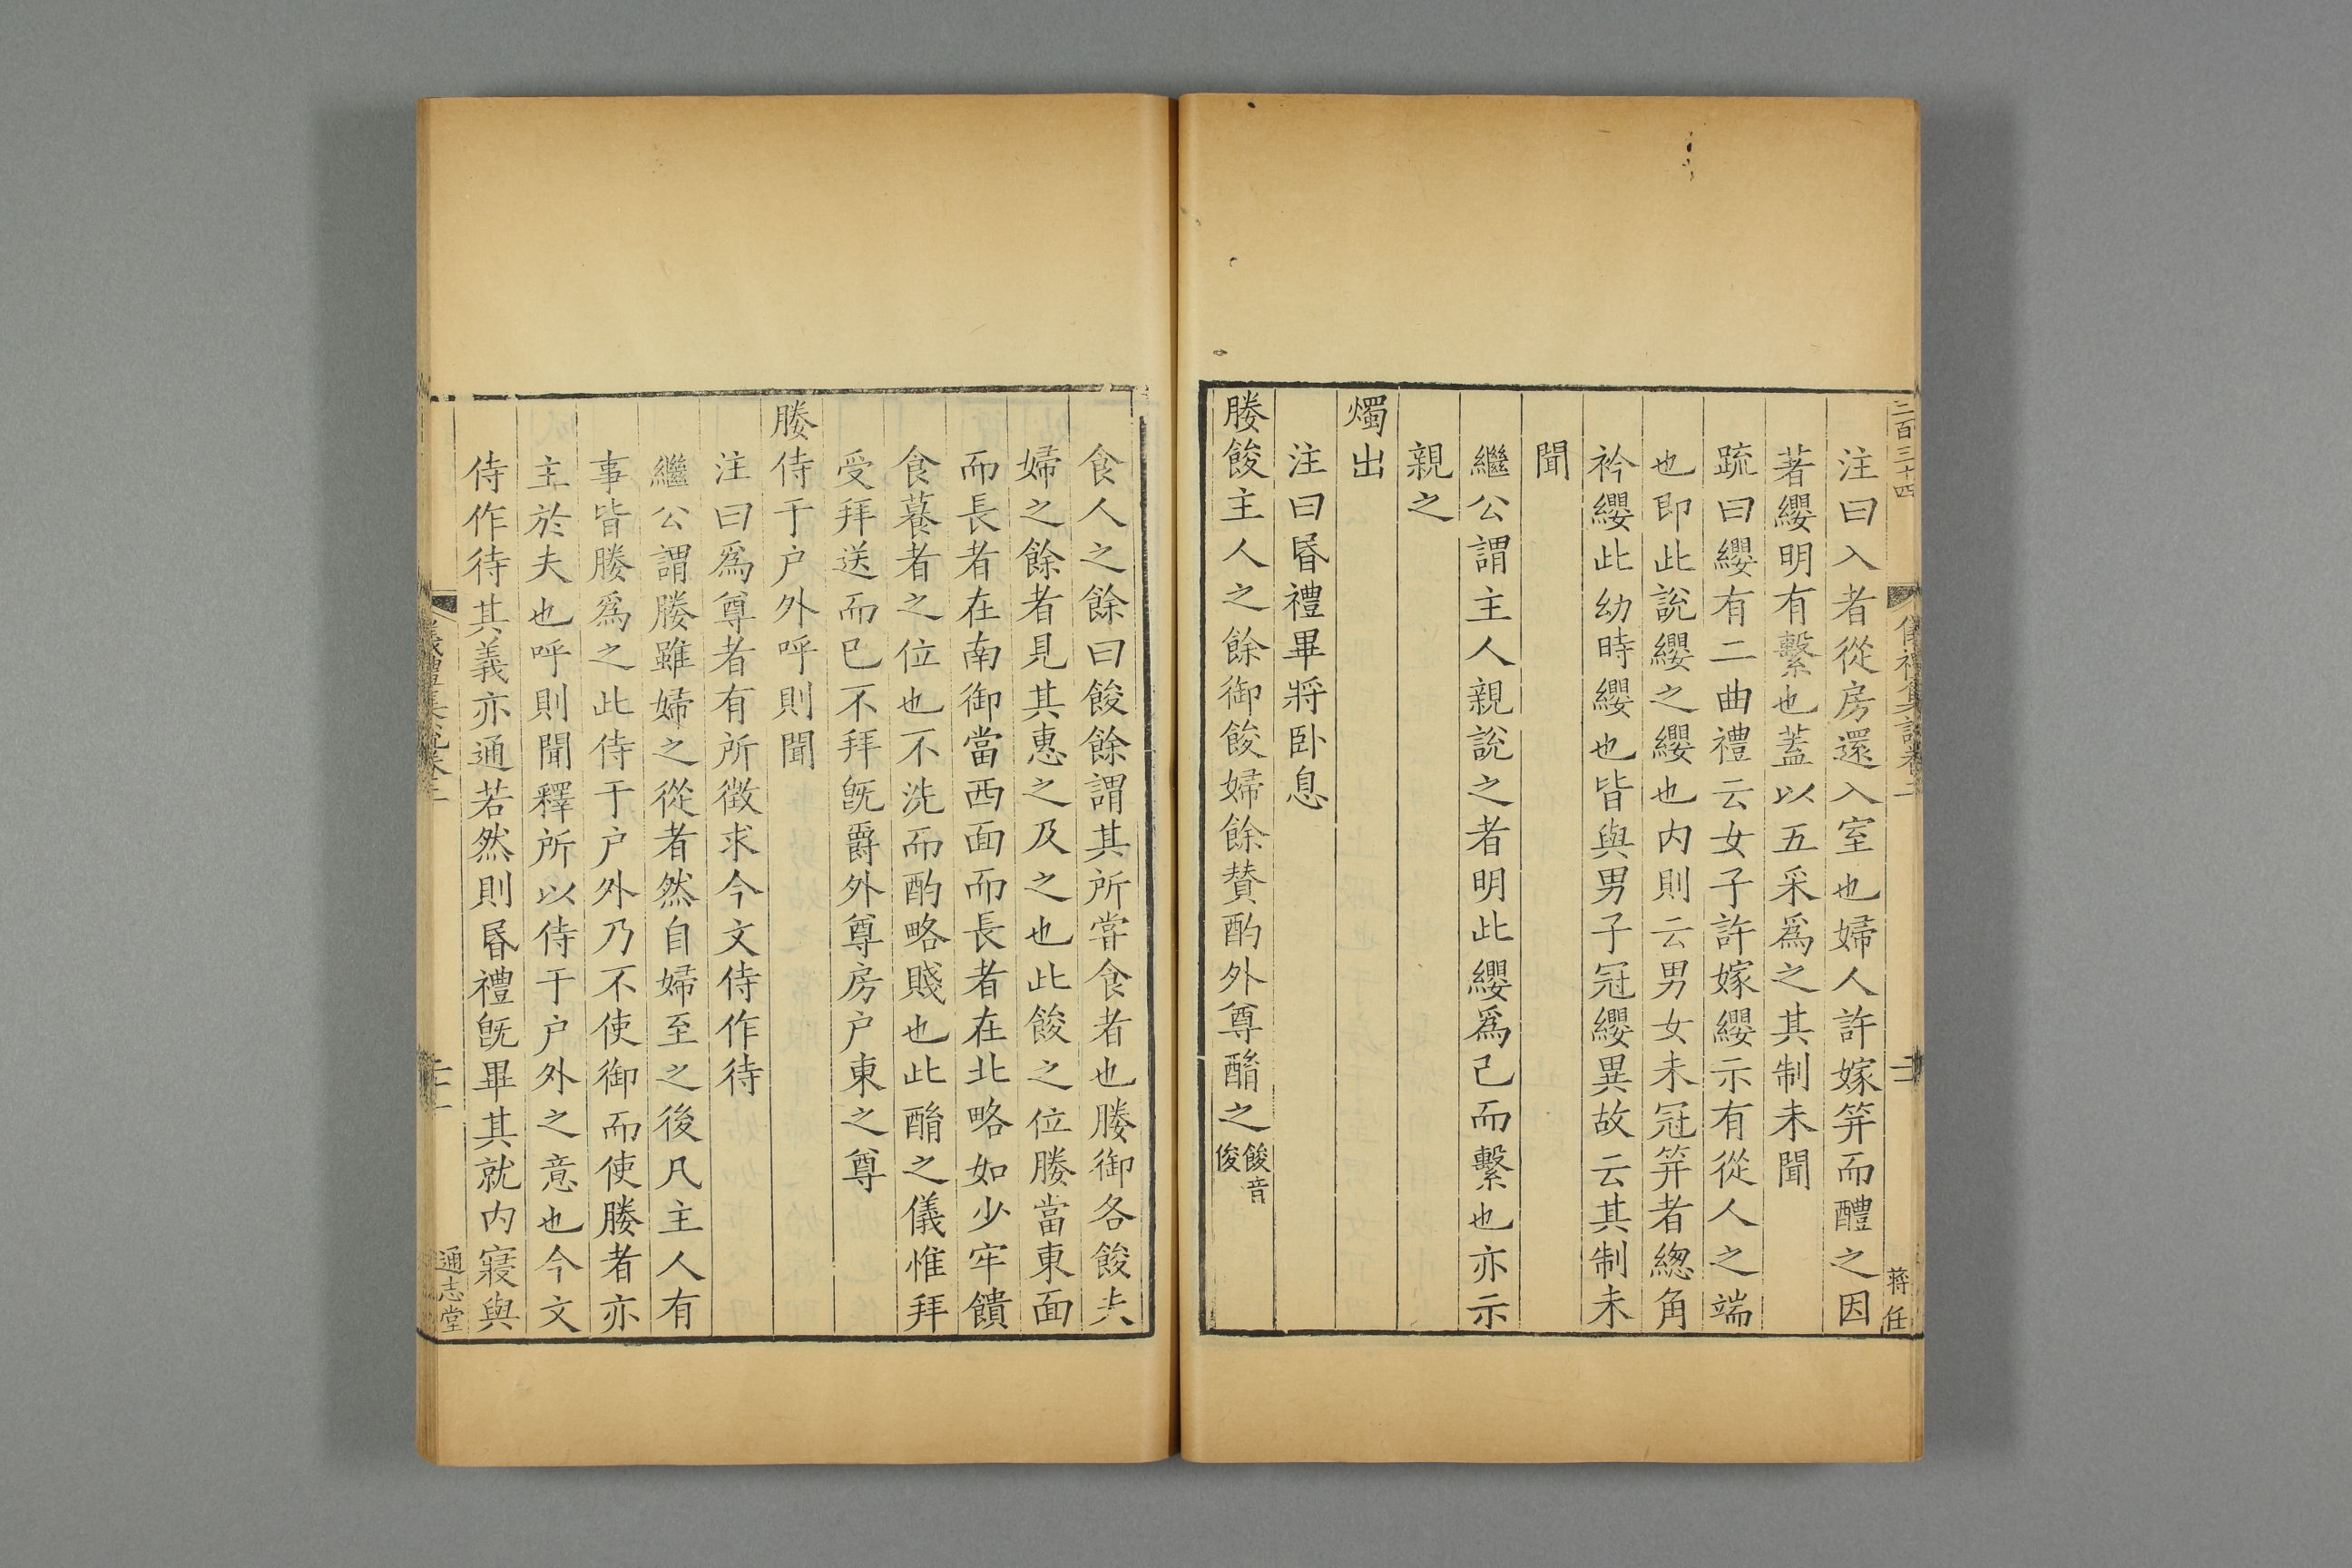 二百三十四
儀禮集說卷二
蔣任
注曰入者從房還入室也婦人許嫁笄而醴之因
著纓明有繫也蓋以五采爲之其制未聞
疏曰纓有二曲禮云女子許嫁纓示有從人之端
也即此說纓之纓也内則云男女未冠笄者緫角
衿纓此幼時纓也皆與男子冠纓異故云其制未
聞
繼公謂主人親說之者明此纓爲己而繫也亦示
親之
燭出
注曰昬禮畢將卧息
媵餕主人之餘御餕婦餘賛酌外尊酳之餕音俊
食人之餘曰餕餘謂其所甞食者也媵御各餕夫
婦之餘者見其惠之及之也此餕之位媵當東面
而長者在南御當西面而長者在北略如少牢饋
食䬶者之位也不洗而酌略賤也此酳之儀惟拜
受拜送而已不拜旣爵外尊房户東之尊
媵侍于户外呼則聞
注曰爲尊者有所徵求今文侍作待
繼公謂媵雖婦之從者然自婦至之後凡主人有
事皆媵爲之此侍于户外乃不使御而使媵者亦
主於夫也呼則聞釋所以侍于户外之意也今文
侍作待其義亦通若然則昬禮旣畢其就内寢與
儀禮集說卷二
通志堂